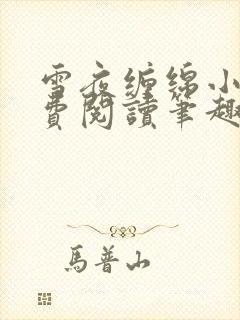 雪夜缠绵小
費閱讀筆趣
馬普山